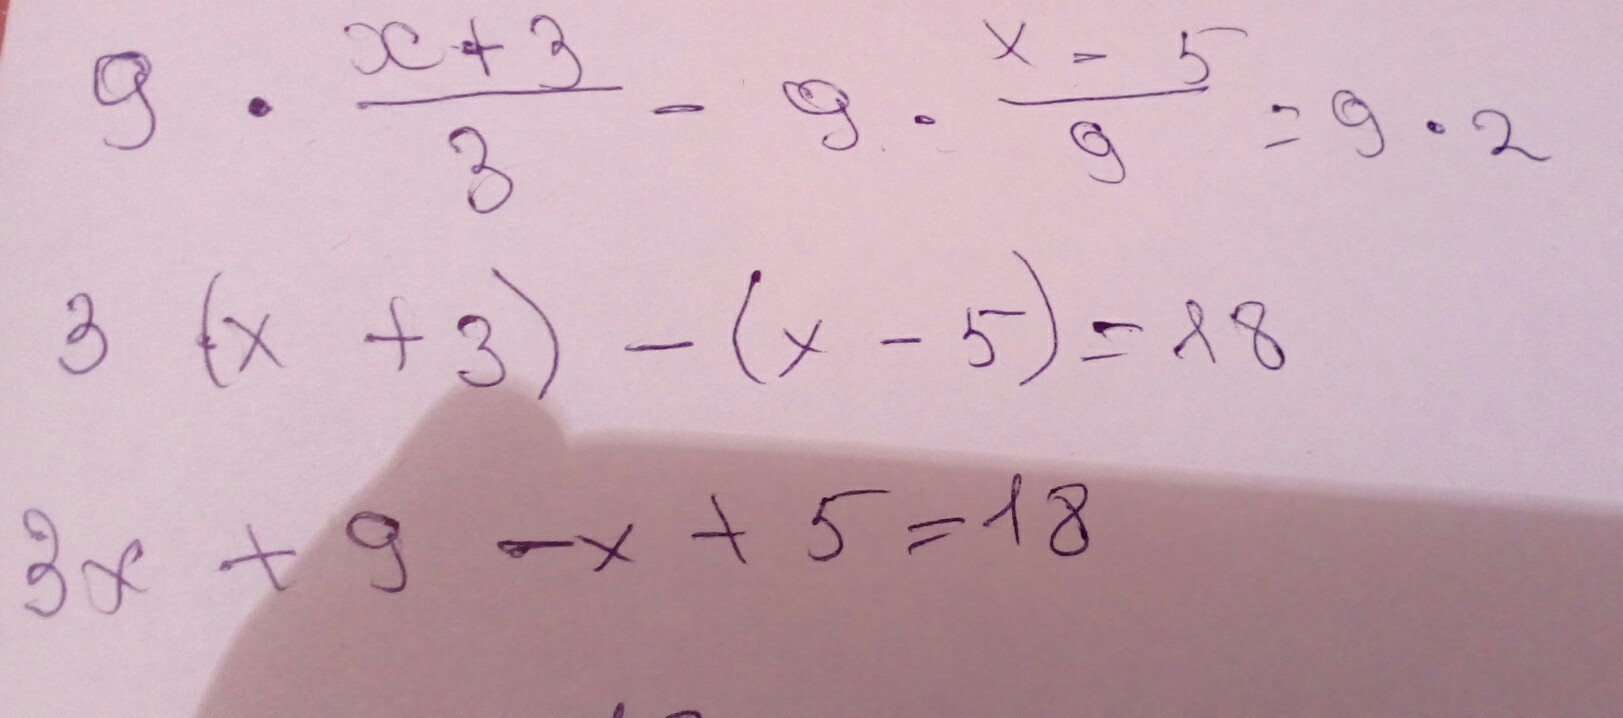 9 · x + 3 / 3 - 9 · x - 5 / 9 = 9 · 2
3 (x + 3) - (x - 5) = 18
3x + 9 - x + 5 = 18